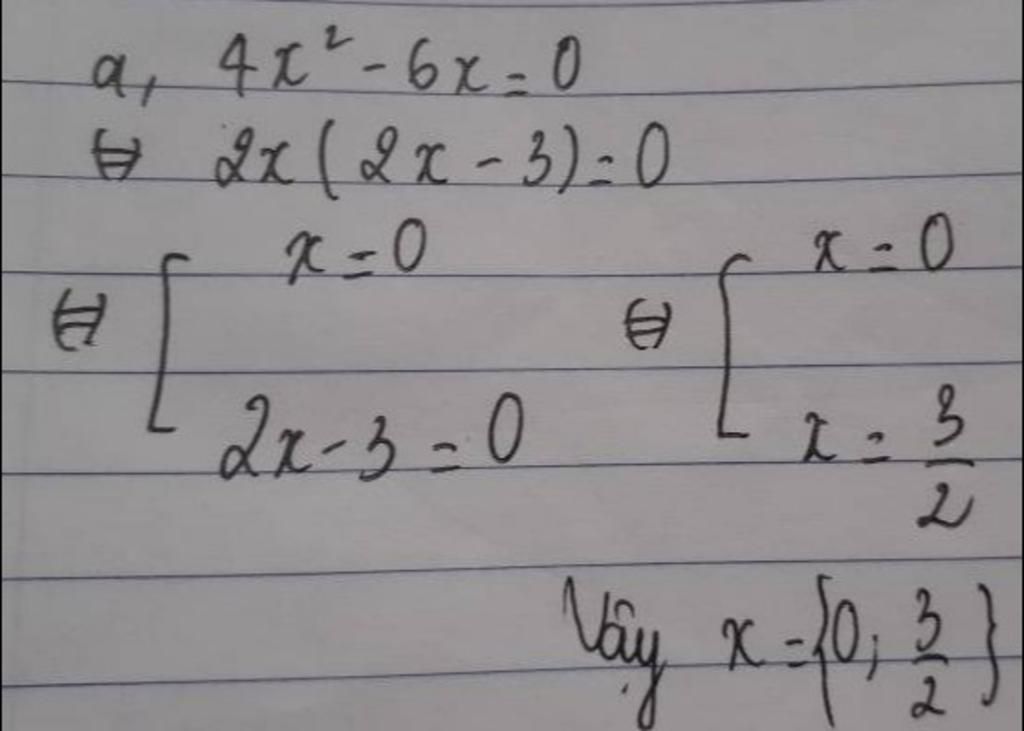 a, 4x² - 6x = 0
⇔ 2x(2x - 3) = 0
⇔ [ x = 0 ⇔ [ x = 0
2x - 3 = 0 x = 3/2
Vậy x = {0; 3/2}